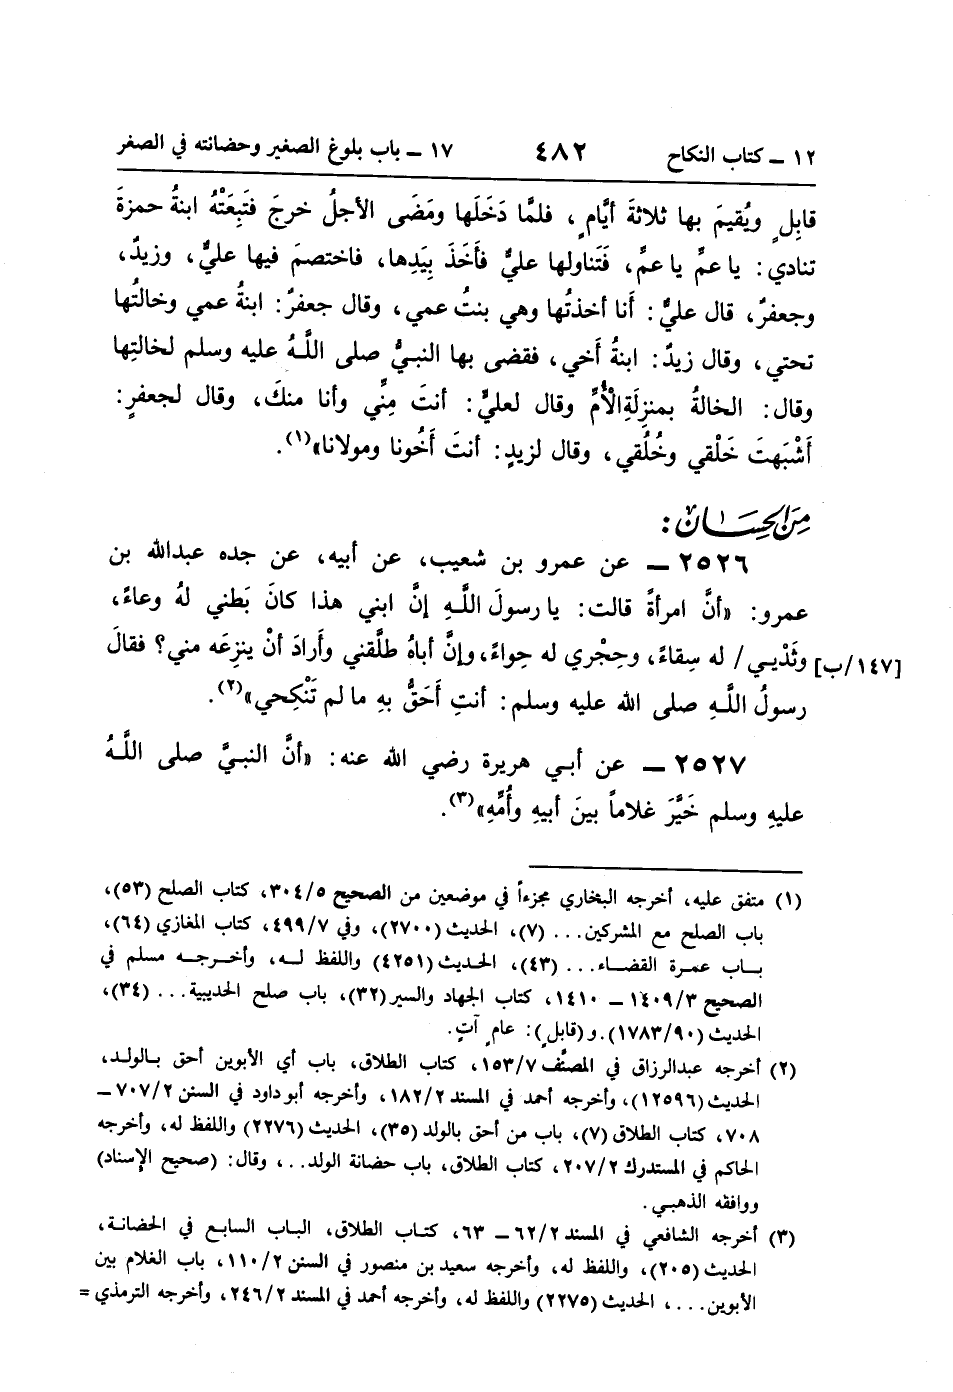 ١٢ ــ كتاب النكاح ٤٨٢ ١٧ ــ باب بلوغ الصغير وحضانته في الصغر
قابِلٍ ويُقيمَ بها ثلاثةَ أيَّامٍ، فلمَّا دَخَلَها ومَضَى الأجلُ خرجَ فتَبِعَتْهُ ابنةُ حمزةَ
تنادي: يا عمِّ يا عمِّ، فَتَناولها عليٌّ فأَخَذَ بِيَدِها، فاختصمَ فيها عليٌّ، وزيدٌ،
وجعفرٌ، قال عليٌّ: أَنا أخذتُها وهي بنتُ عمي، وقال جعفرٌ: ابنةُ عمي وخالتُها
تحتي، وقال زيدٌ: ابنةُ أَخي، فقضى بها النبيُّ صلى اللَّهُ عليه وسلم لخالتِها
وقال: الخالةُ بمنزِلَةِالْأُمِّ وقال لعليٍّ: أنتَ مِنِّي وأنا منكَ، وقال لجعفرٍ:
أَشْبَهتَ خَلْقي وخُلُقي، وقال لزيدٍ: أنتَ أَخُونا ومولانا»(١).
مِنَ الحِسَان:
٢٥٢٦ ــ عن عمرو بن شعيب، عن أبيه، عن جده عبدالله بن
عمرو: «أنَّ امرأةً قالت: يا رسولَ اللَّهِ إنَّ ابني هذا كانَ بَطني لهُ وعاءً،
[١٤٧/ب] وثَدْيي/ له سِقاءً، وحِجْري له حِواءً، وإنَّ أباهُ طلَّقني وأَرادَ أنْ ينزِعَه مني؟ فقالَ
رسولُ اللَّهِ صلى الله عليه وسلم: أنتِ أَحَقُّ بهِ ما لم تَنْكِحي»(٢).
٢٥٢٧ ــ عن أبي هريرة رضي الله عنه: «أنَّ النبيَّ صلى اللَّهُ
عليهِ وسلم خَيَّرَ غلاماً بينَ أبيهِ وأُمِّهِ»(٣).
(١) متفق عليه، أخرجه البخاري مجزءاً في موضعين من الصحيح ٣٠٤/٥، كتاب الصلح (٥٣)،
باب الصلح مع المشركين... (٧)، الحديث (٢٧٠٠)، وفي ٤٩٩/٧، كتاب المغازي (٦٤)،
باب عمرة القضاء... (٤٣)، الحديث (٤٢٥١) واللفظ له، وأخرجه مسلم في
الصحيح ١٤٠٩/٣ ــ ١٤١٠، كتاب الجهاد والسير (٣٢)، باب صلح الحديبية... (٣٤)،
الحديث (١٧٨٣/٩٠). و(قابلٍ): عامٍ آتٍ.
(٢) أخرجه عبدالرزاق في المصنَّف ١٥٣/٧، كتاب الطلاق، باب أي الأبوين أحق بالولد،
الحديث (١٢٥٩٦)، وأخرجه أحمد في المسند ١٨٢/٢، وأخرجه أبو داود في السنن ٧٠٧/٢ ــ
٧٠٨، كتاب الطلاق (٧)، باب من أحق بالولد (٣٥)، الحديث (٢٢٧٦) واللفظ له، وأخرجه
الحاكم في المستدرك ٢٠٧/٢، كتاب الطلاق، باب حضانة الولد..، وقال: (صحيح الإسناد)
ووافقه الذهبي.
(٣) أخرجه الشافعي في المسند ٦٢/٢ ــ ٦٣، كتاب الطلاق، الباب السابع في الحضانة،
الحديث (٢٠٥)، واللفظ له، وأخرجه سعيد بن منصور في السنن ١١٠/٢، باب الغلام بين
الأبوين...، الحديث (٢٢٧٥) واللفظ له، وأخرجه أحمد في المسند ٢٤٦/٢، وأخرجه الترمذي =